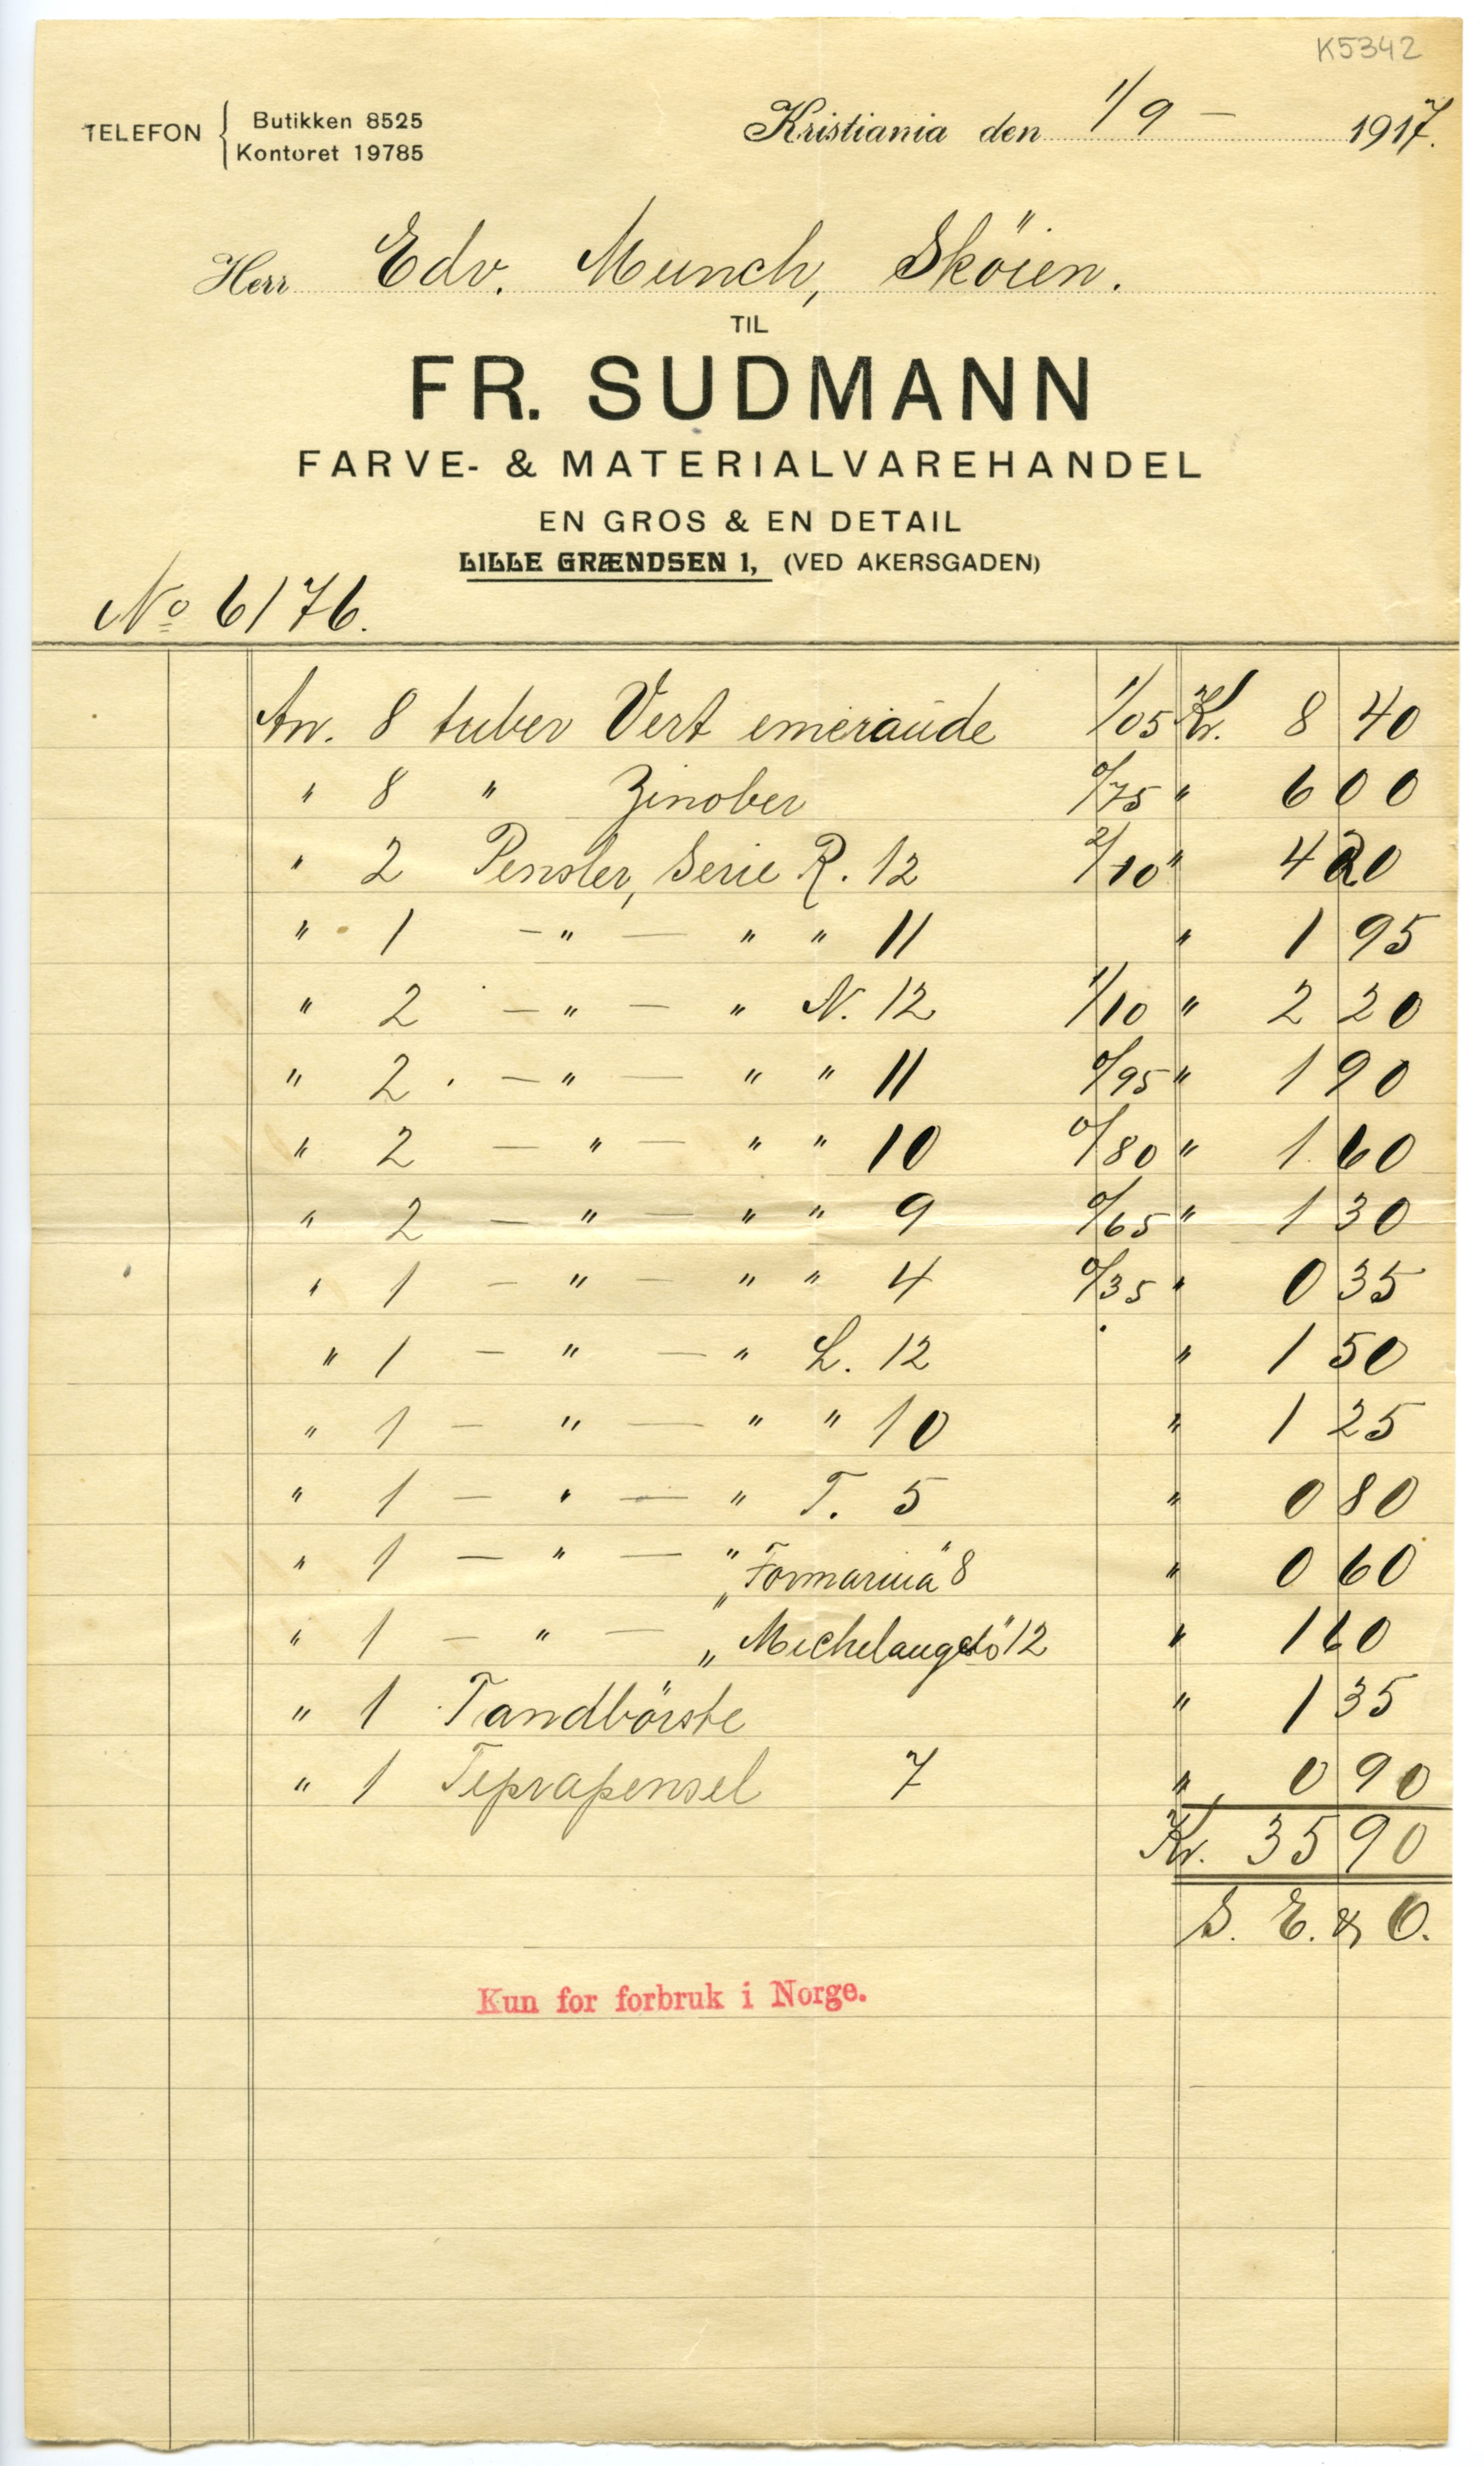 K5342
TELEFON { Butikken 8525
Kontoret 19785
Kristiania den 1/9 – 1917.
Herr Edv. Munch, Sköien.
TIL
FR. SUDMANN
FARVE- & MATERIALVAREHANDEL
EN GROS & EN DETAIL
LILLE GRÆNDSEN 1, (VED AKERSGADEN)
No 6176.
An. 8 tuber Vert emeraude 1/05 Kr. 8 40
" 8 " Zinober 0/75 " 6 00
" 2 Pensler, Serie R. 12 2/10 " 4 20
" 1 – " – " " 11 " 1 95
" 2 – " – " N. 12 1/10 " 2 20
" 2 – " – " " 11 0/95 " 1 90
" 2 – " – " " 10 0/80 " 1 60
" 2 – " – " " 9 0/65 " 1 30
" 1 – " – " " 4 0/35 " 0 35
" 1 – " – " L. 12 " 1 50
" 1 – " – " " 10 " 1 25
" 1 – " – " T. 5 " 0 80
" 1 – " – " 8 " 0 60
" 1 – " – „Michelangelo" 12 " 1 60
" 1 Tandbörste " 1 35
" 1 7 " 0 90
Kr. 35 90
S. E. & O.
Kun for forbruk i Norge.